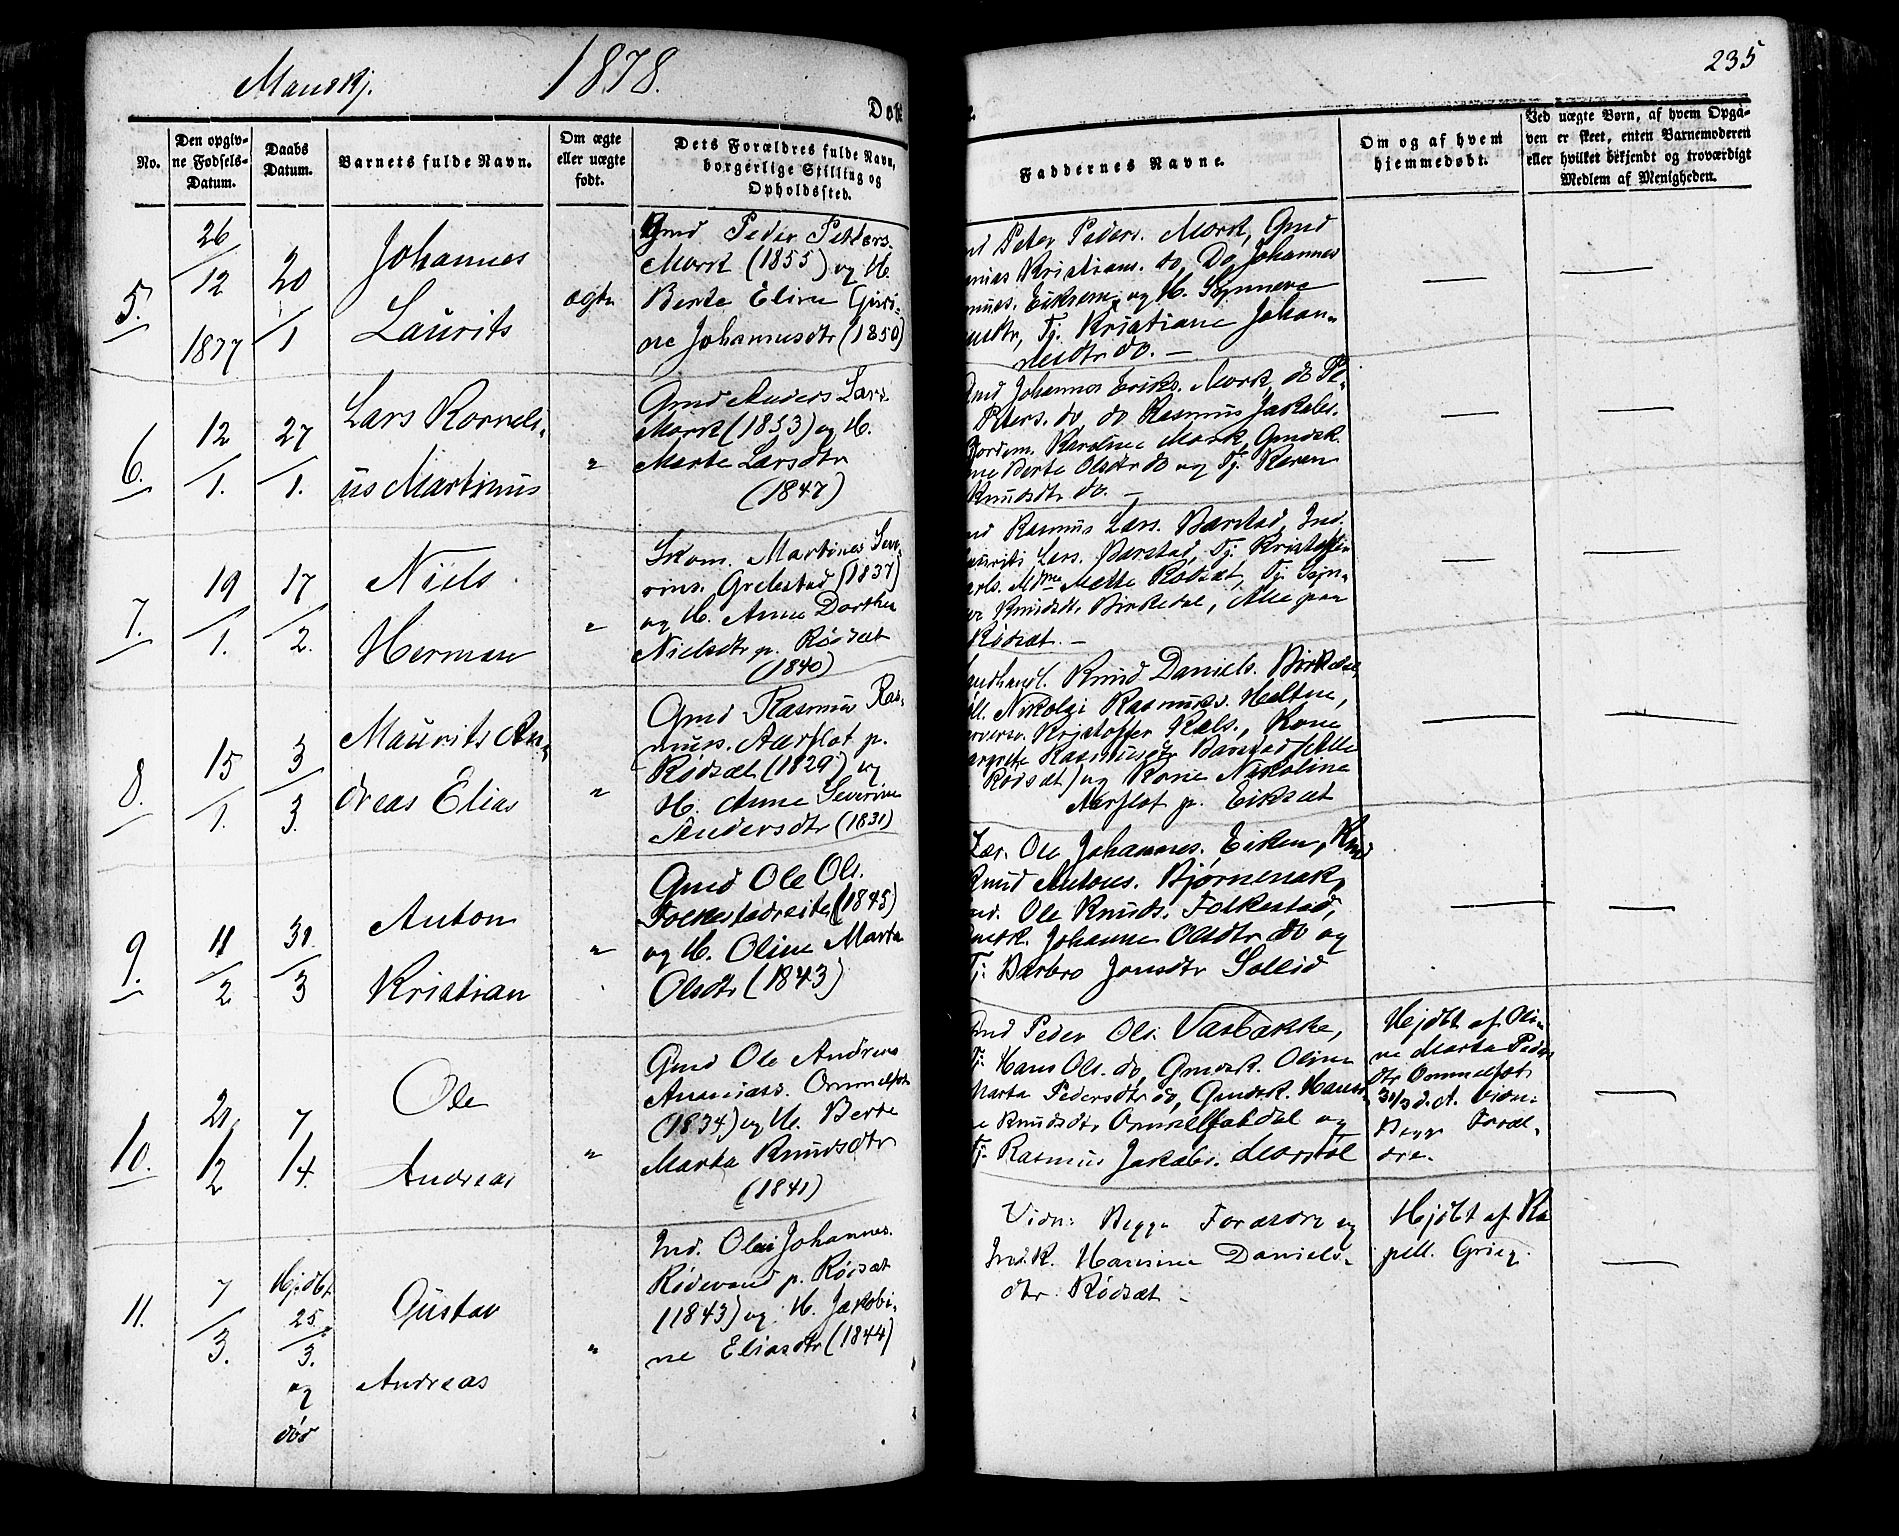 Mandkj.
1878.
235
Døb
No.
Den opgiv-
ne Fødsels-
Datum.
Daabs
Datum.
Barnets fulde Navn.
Om ægte
eller uægte
født.
Dets Forældres fulde Navn,
borgerlige Stilling og
Opholdssted.
Faddernes Navne.
Om og af hvem
hjemmedøbt.
Ved uægte Børn, af hvem Opgi-
ven er skeet, enten Barnemoderen
eller hvilket bekjendt og troværdigt
Medlem af Menigheden.
5.
26/12
1877
20/1
Johannes
Laurits
ægte
Gmd Peder Petters.
Mork (1855) og H.
Berte Eline Guri-
ne Johannesdtr (1850)
Peter Peders. Mork, Gmd
Kristians. do, Do Johannes
Eiksem og H. Synneve
Tj. Kristiane Johan-
nesdtr do. —
6.
12/1.
27/1.
Lars Korneli-
us Martinus
"
Gmd Anders Lars.
Mork (1853) og H.
Marte Larsdtr
(1847)
Gmd Johannes Eriks. Mork, do Pe-
Peters. do, do Rasmus Jakobs.
Jordem. Karoline Mork, Gmdsk.
Berte Olsdtr do og Tj. Karen
Knudsdtr do. —
7.
19/1.
17/2.
Niels
Herman
"
Skom. Martines Seve-
rins. Grebstad (1837)
og H. Anne Dorthea
Nielsdtr p. Rødsæt
(1840)
Rasmus Lars. Barstad, Ind.
Laurits Lars. Barstad, Tj. Kristoffer
Karls. Mdme Mette Rødsæt, Tj. Syn-
Knudsdtr Birkedal, Alle paa
Rødsæt. —
8.
15/1.
3/3.
Maurits An-
dreas Elias
"
Gmd Rasmus Ras-
muss. Aarflot p.
Rødsæt (1829) og
H. Anne Severine
Andersdtr (1831)
Landhandl. Knud Daniels. Birkedal
Nikolai Rasmuss. Heltne,
Kristoffer Kals., Kone
Rasmusdtr Barstad (Alle
Rødsæt) og Kone Nikoline
Aarflot p. Eiksæt
9.
11/2
31/3
Anton
Kristian
"
Gmd Ole Ols.
Folkestadreite (1845)
og H. Oline Marta
Olsdtr (1843)
Lær. Ole Johannes. Eiken, Kmd
Knud Antons. Bjørnenak,
Ole Knuds. Folkestad,
Gmdsk. Johanne Olsdtr do og
Tj. Barbro Jonsdtr Sollid
10.
21/2
7/4.
Ole
Andreas
"
Gmd Ole Andreas
Ananiass. Ommelfot
(1834) og H. Berte
Marta Knudsdtr
(1841)
Gmd Peder Ols. Vasbakke,
Tj. Hans Ols. do, Gmdsk. Oline
Marta Pedersdtr do, Gmdsk. Hans-
e Knudsdtr Ommelfotdal og
Tj. Rasmus Jakobs. Morstøl
Hjdbt af Oli-
ne Marta Peders
dtr Ommelfot
31/3 d. A. Vidn.
Begge Foræl-
dre.
11.
7/3.
Hjdbt.
25/3.
og
død
Gustav
Andreas
"
Ind. Olai Johannes.
Rødevand p. Rødsæt
(1843) og H. Jakobi-
ne Eliasdtr (1844)
Vidn: Begge Forældre og
Ind.K. Hansine Daniels-
dtr Rødsæt —
Hjdbt af Ka
pell. Grieg.